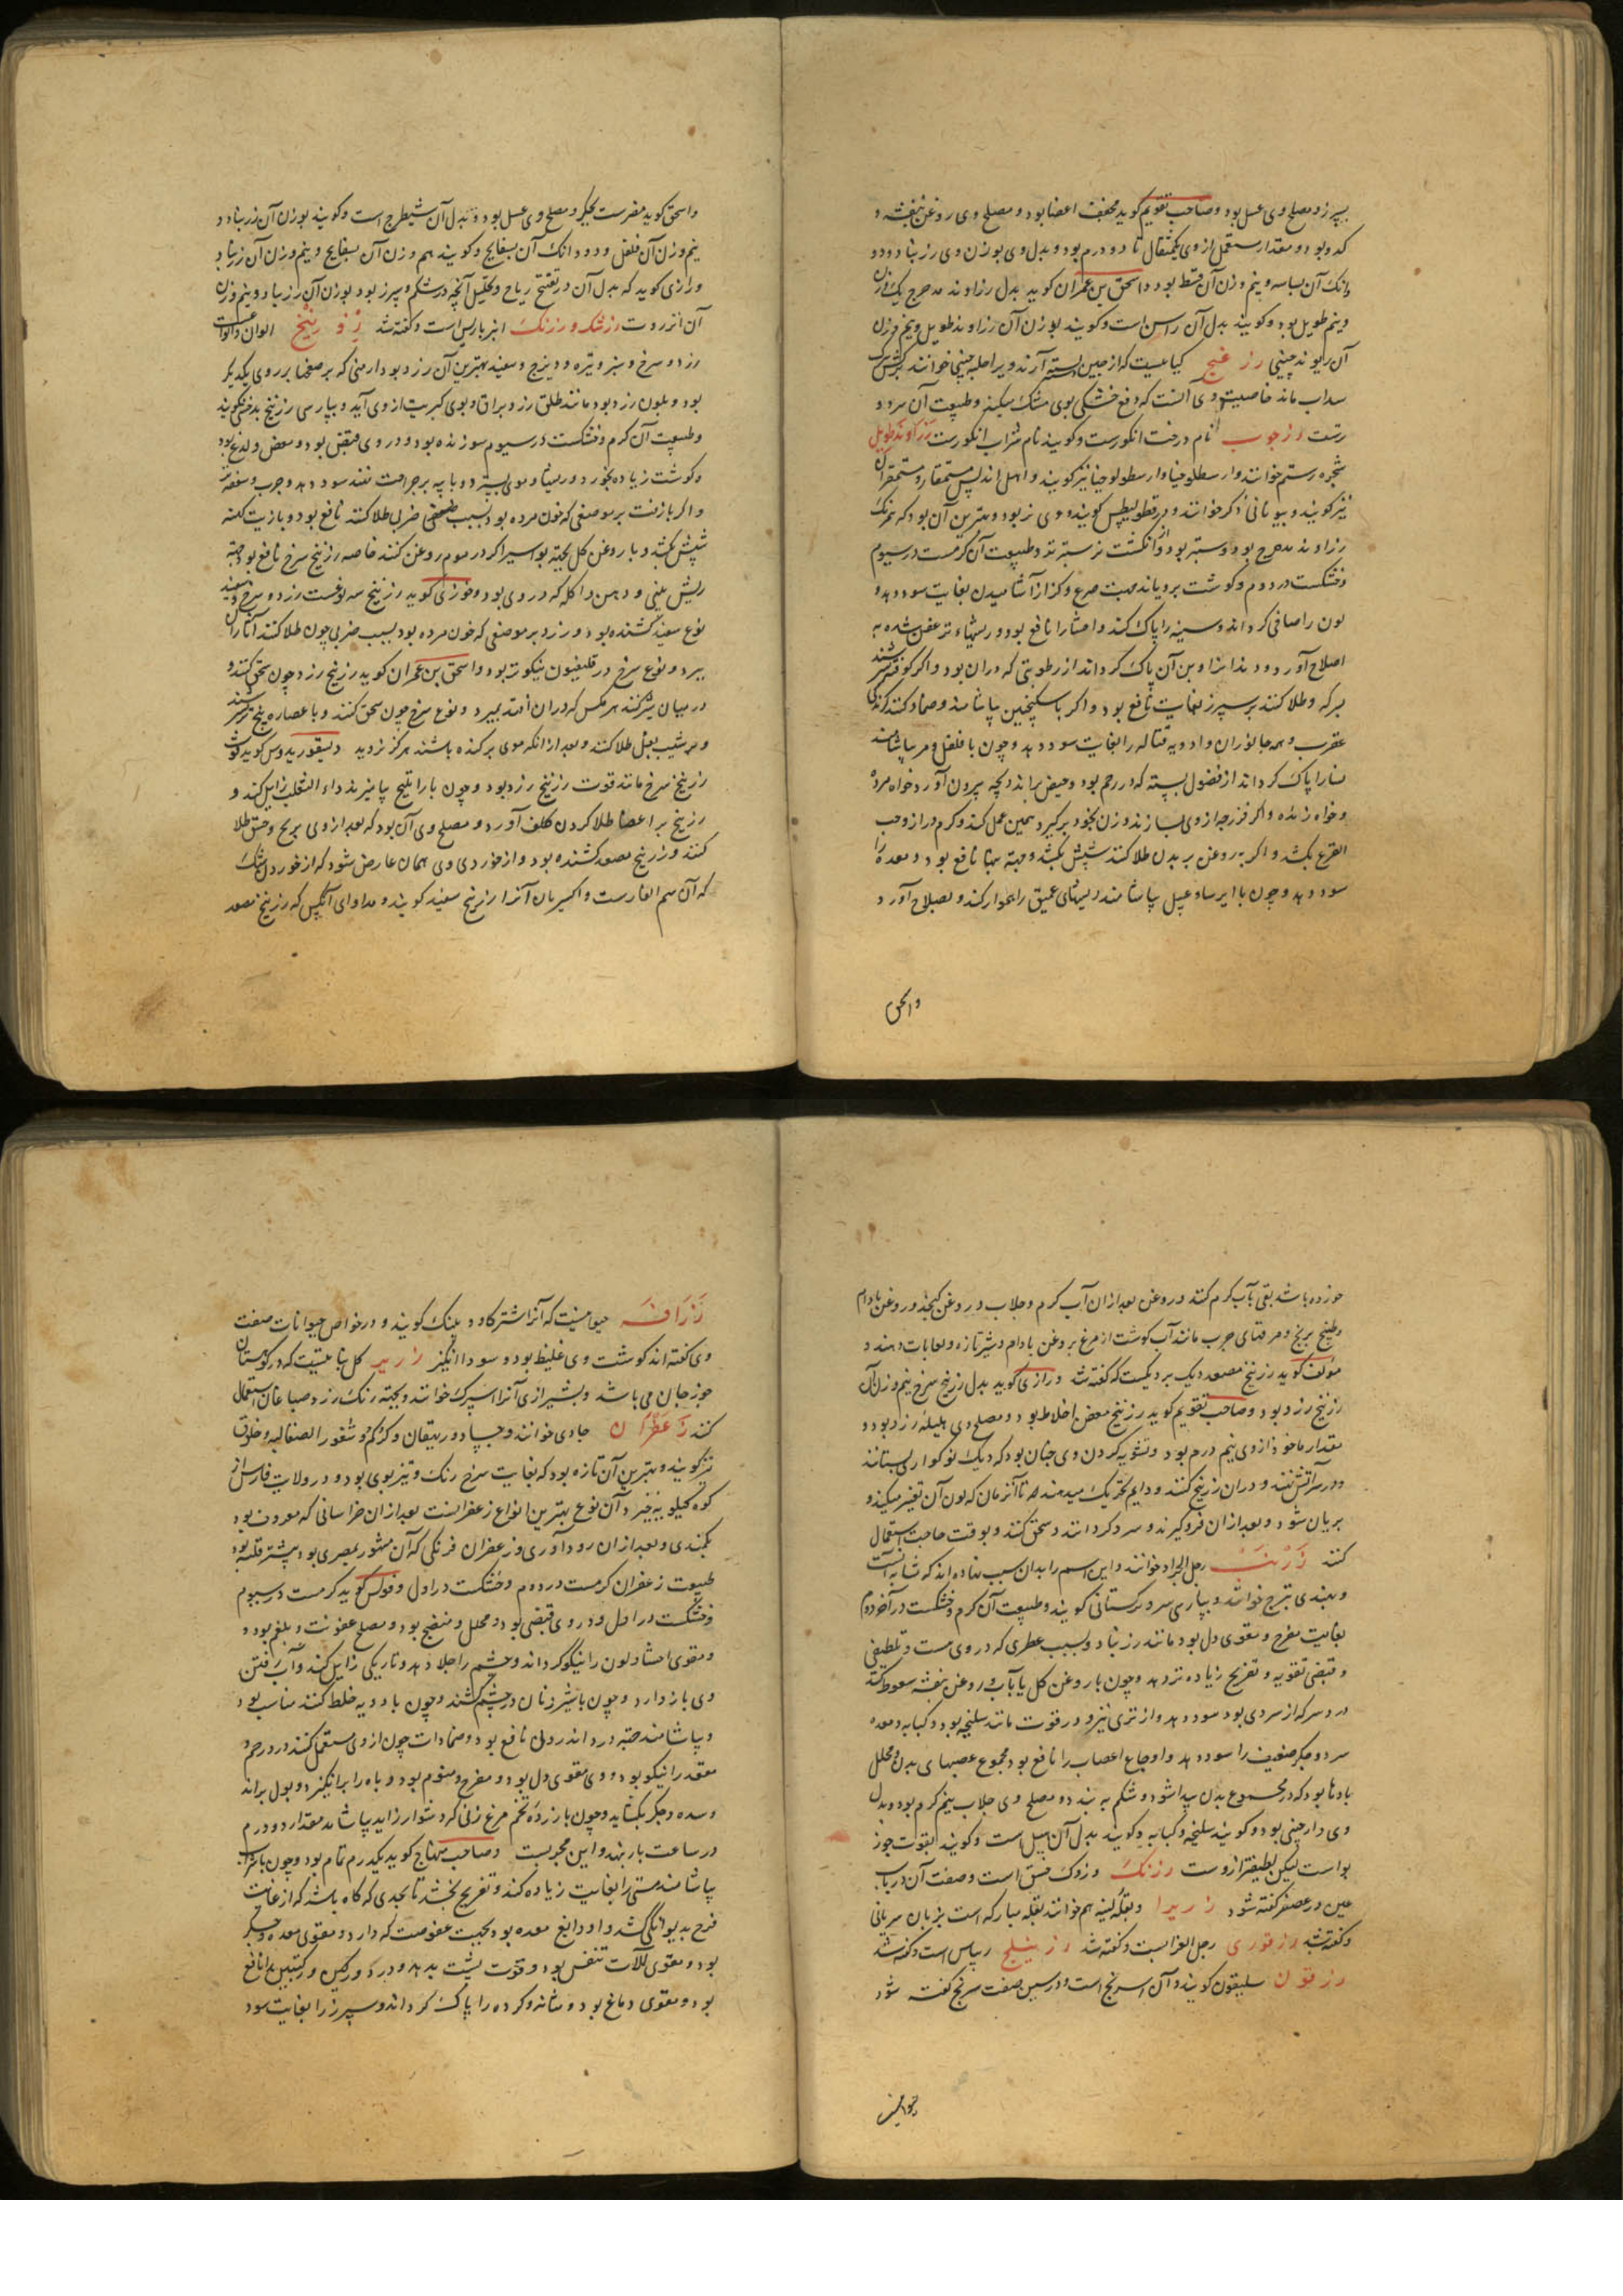 بسپرز و مصلح وی عسل بود و صاحب تقویم گوید مجفف اعضا بود و مصلح وی روغن بنفشه و
کدو بود و مقدار مستعمل از وی یکمثقال تا دو درم بود و بدل وی بوزن وی زرنباد و دو
دانک آن بسباسه و نیم وزن آن قسط بود و اسحق بن عمران گوید بدل زراوند مدحرج یک وزن
و نیم طویل بود و گویند بدل آن راسن است و گویند بوزن آن زراوند طویل و نیم وزن
آن ریوند چینی زر غنج گیاهیست که از چین بسته آرند و برا حلبه چینی خوانند
سداب ماند خاصیت وی آنست که دفع خشکی بوی مشک میکند و طبیعت آن سرد و
ترست زرجون نام درخت انکورست و گویند نام شراب انکورست زراوند طویل
شجره رستم خوانند و ارسطلوخیا و ارسطولوخیا نیز گویند و اهل اندلس مستمقار و مستمقران
نیز گویند و بیونانی ذکر خوانند و در قطولیطس گویند و وی نر بود و بهترین آن بود که بیرنک
زراوند مدحرج بود و وستبر بود و از انکشت نر ستبرتر و طبیعت آن کرمست در سیوم
و خشکست در دوم و گوشت برویاند صبت صرع و کزاز آشامیدن بغایت سود دهد و
لون را صافی گرداند و سینه را پاک کند و احشا را نافع بود و ریشهاء تر عفن شده به
اصلاح آورد و دندانرا و بن آن پاک گرداند از رطوبتی که دران بود و اگر کوفته
بسرکه و طلا کنند بر سپرز بغایت نافع بود و اگر با سکنجبین بیاشامند و ضماد کنند کزندگی
عقرب و همه جانوران و ادویه قتاله را بغایت سود دهد و چون با فلفل و مر بیاشامند
نسا را پاک گرداند از فضول بسته که در رحم بود و حیض براند و بچه بیرون آورد خواه مرده
و خواه زنده و اگر فرزجه از وی بسازند و زن بخود برگیرد همین عمل کند و کرم دراز و حب
القرع بکشد و اگر بروغن بر بدن طلا کنند شپش بکشد و جهة بهق نافع بود و معده را
سود دهد و چون با ایرسا و عسل بیاشامند ریشهای عمیق را هموار کند و بصلاح آورد
واسحق
واسحق گوید مضرست بجگر و مصلح وی عسل بود و بدل آن شیطرج است و گویند بوزن آن زرنباد و
نیم وزن آن فلفل و دو دانک آن بسفایج و گویند هم وزن آن بسفایج و نیم وزن آن زرنباد
و رازی گوید که بدل آن در تفتح ریاح و تحلیل آنچه در شکم و سپرز بود بوزن آن زرنباد و نیم وزن
آن انزروت زرشک و زرنک انبرباریس است و گفته شد زرنیخ الوانست
زرد و سرخ و سبز و تیره و دیزج و سفید بهترین آن زرد بود ارمنی که بر صفحها بر روی یکدیگر
بود و بلون زرد بود مانند طلق زرد براق و بوی کبریت از وی آید و بپارسی زرنیخ بدخشی گویند
و طبیعت آن گرم و خشکست در سیوم سوزنده بود و در وی قبض بود و معفن و لذع بود
و گوشت زیاده بخورد و ورمها و موی بسترد و با پیه بر جراحت نهند سود دهد و جرب و سعفه
و اگر بازفت بر موضعی که خون مرده بود بسبب ضعفی ضربی طلا کنند نافع بود و با زیت کهنه
شپش بکشد و با روغن گل بجهة بواسیر اگر در موم روغن کنند خاصه زرنیخ سرخ نافع بود جهة
ریش بینی و دهن و اکله که در وی بود و فوزی گوید زرنیخ سه نوعست زرد و سرخ و سفید
نوع سفید کشنده بود و زرد بر موضعی که خون مرده بود بسبب ضربی چون طلا کنند آثار آن
ببرد و نوع سرخ در قلیفیون نیکوتر بود و اسحق بن عمران گوید زرنیخ زرد چون سحق کنند و
در میان شیر کنند هر مگس که دران افتد بمیرد و نوع سرخ چون سحق کنند و با عصاره بنج تر سرشند
و در شیب بغل طلا کنند و بعد از آنکه موی برکنده باشند هرگز نروید و دیسقوریدوس گوید قوت
زرنیخ سرخ مانند قوت زرنیخ زرد بود و چون با راتینج بیامیزند داء الثعلب زایل کند و
زرنیخ بر اعضا طلا کردن کلف آورد و مصلح وی آن بود که بعد از وی برنج و خسق طلا
کنند و زرنیخ مصعد کشنده بود و از خوردن وی همان عارض شود که از خوردن شک
که آن سم الفارست و اکسیریان آنرا زرنیخ سفید گویند و مداوای آنکس که زرنیخ مصعد
خورده باشد بقی بآب گرم کنند و روغن بعد از آن آب گرم و جلاب و روغن کنجد و روغن بادام
و طبیخ برنج و مرقهای چرب مانند آب گوشت از مرغ بروغن بادام و شیر تازه و لعابات دهند و
مؤلف گوید زرنیخ مصعد دیک بردیکست که گفته شد و رازی گوید بدل زرنیخ سرخ نیم وزن آن
زرنیخ زرد بود و صاحب تقویم گوید زرنیخ معفن اخلاط بود و مصلح وی هلیله زرد بود و
مقدار ماخوذ از وی نیم درم بود و تشویه کردن وی چنان بود که دیک نو گواری بستانند
و در سر آتش نهند و دران زرنیخ کنند و دایم تحریک میدهند تا آن زمان که لون آن تغییر میکند و
بریان شود و بعد از ان فروگیرند و سرد گردانند و سحق کنند و بوقت حاجت استعمال
کنند زرنب رجل الجراد خوانند و این اسم را بدان سبب نهاده اند که شابه آنست
و بهندی تبرج خوانند و بپارسی سرو ترکستانی گویند و طبیعت آن گرم و خشکست در آخر دوم
بغایت مفرح و مقوی دل بود مانند زرنباد و بسبب عطری که در وی هست و تلطیفی
و قبضی تقویه و تفریح زیاده تر دهد و چون با روغن گل یا با آب و روغن بنفشه سعوط کنند
درد سر که از سردی بود سود دهد و از تری نیز و در قوت مانند سلیخه بود و کبابه و معده
سرد و جگر ضعیف را سود دهد و اوجاع اعصاب را نافع بود مجموع عصبهای بدن و محلل
بادها بود که در مجموع بدن پیدا شود و شکم به بندد و مصلح وی جلاب نیم گرم بود و بدل
وی دارچینی بود و گویند سلیخه و کبابه و گویند بدل آن هیل است و گویند بقوت جوز
بواست لیکن لطیفتر از وست زرنک و زرک فسق است و صفت آن در باب
عین در عصفر گفته شود زریرا و بقله لینه هم خوانند بقله مبارکه است بزبان سریانی
و گفته شد زرقوری رجل الغرابست و گفته شد زرنیلج ریباس است و گفته شد
زرقون سلیقون گویند و آن اسرنج است و در سین صفت سرنج گفته شود
زرافه حیوانیست که آنرا اشتر گاو و پلنک گویند و در خواص حیوانات صفت
وی گفته اند گوشت وی غلیظ بود و سودا انگیز زریر گل نباتیست که در کوهستان
جوزجان می باشد و بشیرازی آنرا اسپرک خوانند و بجهة رنک زرد صباغان استعمال
کنند زعفران جادی خوانند و جساد و ریهقان و کرکم و شعور الصقالبه و خلوق
نیز گویند و بهترین آن تازه بود که بغایت سرخ رنک و تیز بوی بود و در ولایت فارس از
کوه گیلویه خیزد و آن نوع بهترین انواع زعفرانست بعد از ان خراسانی که معروف بود
بجنبدی و بعد از ان رودآوری و زعفران فرنگی که آن مشهور بمصری بود بیشتر قلب بود
طبیعت زعفران گرمست در دوم و خشکست در اول و فولس گوید گرمست در سیوم
و خشکست در اول و در وی قبضی بود و محلل و منضج بود و مصلح عفونت و بلغم بود و
و مقوی احشا و لون را نیکو گرداند و چشم را جلا دهد و تاریکی زایل کند و آب رفتن
وی باز دارد و چون با شیر زنان در چشم کشند و چون با ادویه خلط کنند مناسب بود
و بیاشامند جهة درد اندرون نافع بود و ضمادات چون از وی مستعمل کنند در رحم و
مقعد را نیکو بود و وی مقوی دل بود و مفرح و منوم بود و باه را برانگیزد و بول براند
و سده جگر بگشاید و چون با زرده تخم مرغ زنی که دشوار زاید بیاشامد مقدار دو درم
در ساعت بار بنهد و این مجربست و صاحب منهاج گوید یکدرم تمام بود و چون با شراب
بیاشامند مستی را بغایت زیاده کند و تفریح بخشد تا بحدی که گاه باشد که از غایت
فرح بدیوانگی کشد و او دابغ معده بود بجهت عفوصت که دارد و مقوی معده و جگر
بود و مقوی آلات تنفس بود و قوت پشت بدهد و درد ورکین و رکبتین را نافع
بود و مقوی دماغ بود و مثانه و گرده را پاک گرداند و سپرز را بغایت سود